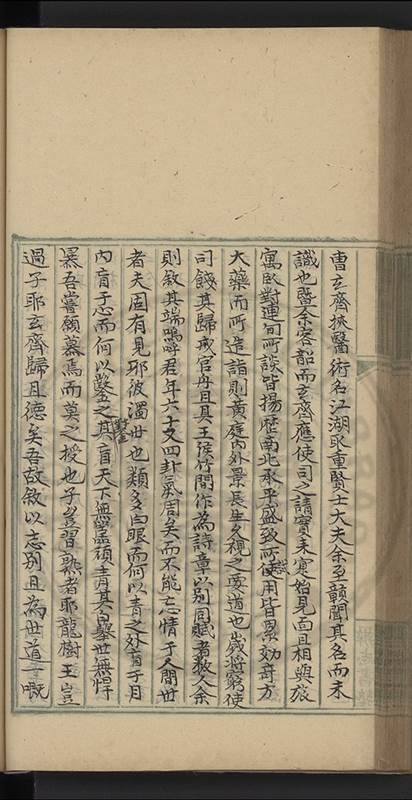 曹玄齊挾醫術名江湖聚重賢士大夫余至贛聞其名而未
識也暨余客韶而玄齊應使司之請實未寔始見而且相與旅
寓臥對連旬所談皆揚歷南北承平盛致所使用皆累効奇方
大藥而所造詣則黄庭内外景長生久視之要道也歲將窮使
司餞其歸戒官舟且具王侯竹閒作為詩章以别同賦者数人余
則敘其端嗚呼君年六十又四卦氣周矣而不能忘情于人間世
者夫固有見耶彼濁世也類多白眼而何以青之外盲于目
内盲于心而何以鑿之其盲天下無瞽瞶青其白舉世無悍
暴吾嘗願慕焉而莫之授也子豈習熟者耶龍樹王豈
過子耶玄齊歸且德矣吾故敘以志别且為世道嘅